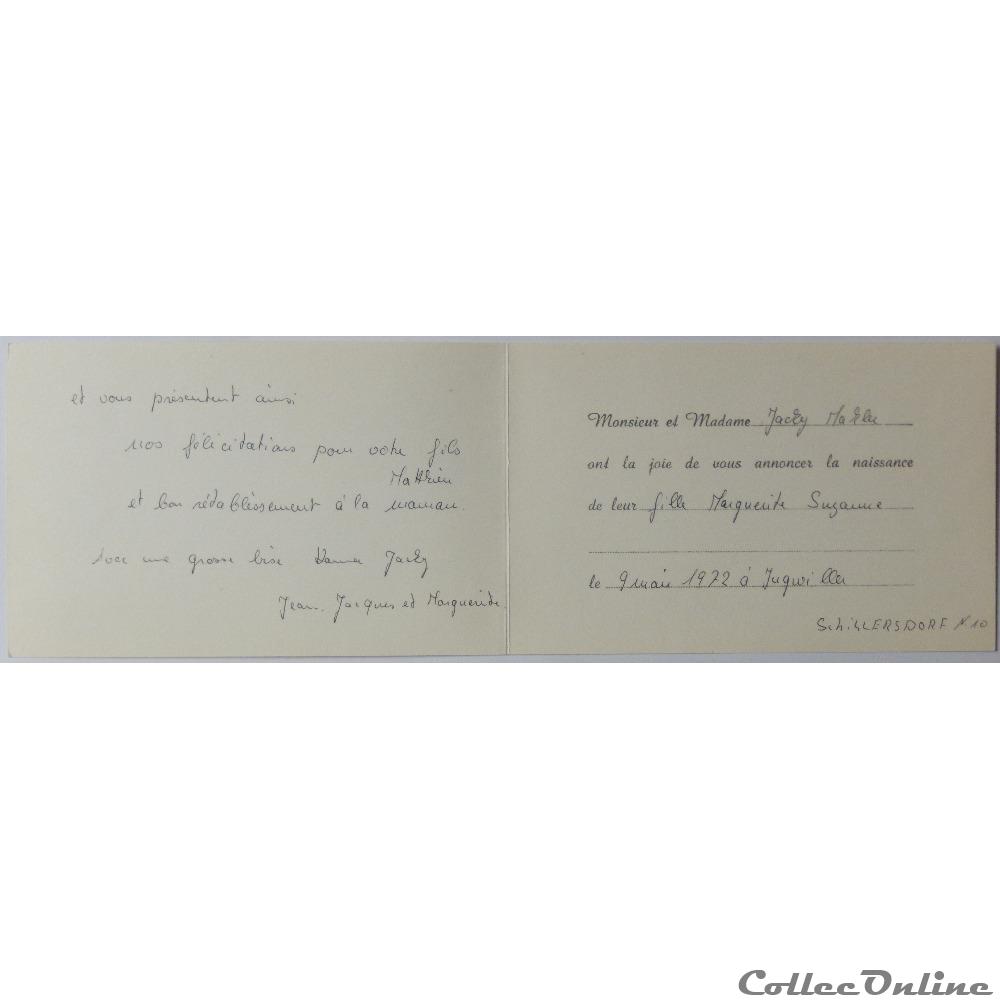 et vous présentent ainsi
nos félicitations pour votre fils
Matthieu
et bon rétablissement à la maman.
avec une grosse bise Jacky
Jean. Jacques et Marguerite.
Monsieur et Madame Jacky
ont la joie de vous annoncer la naissance
de leur fille Marguerite Suzanne
le 9 mai 1972 à Ingwiller
SchillERSDORF N°10
CollecOnline